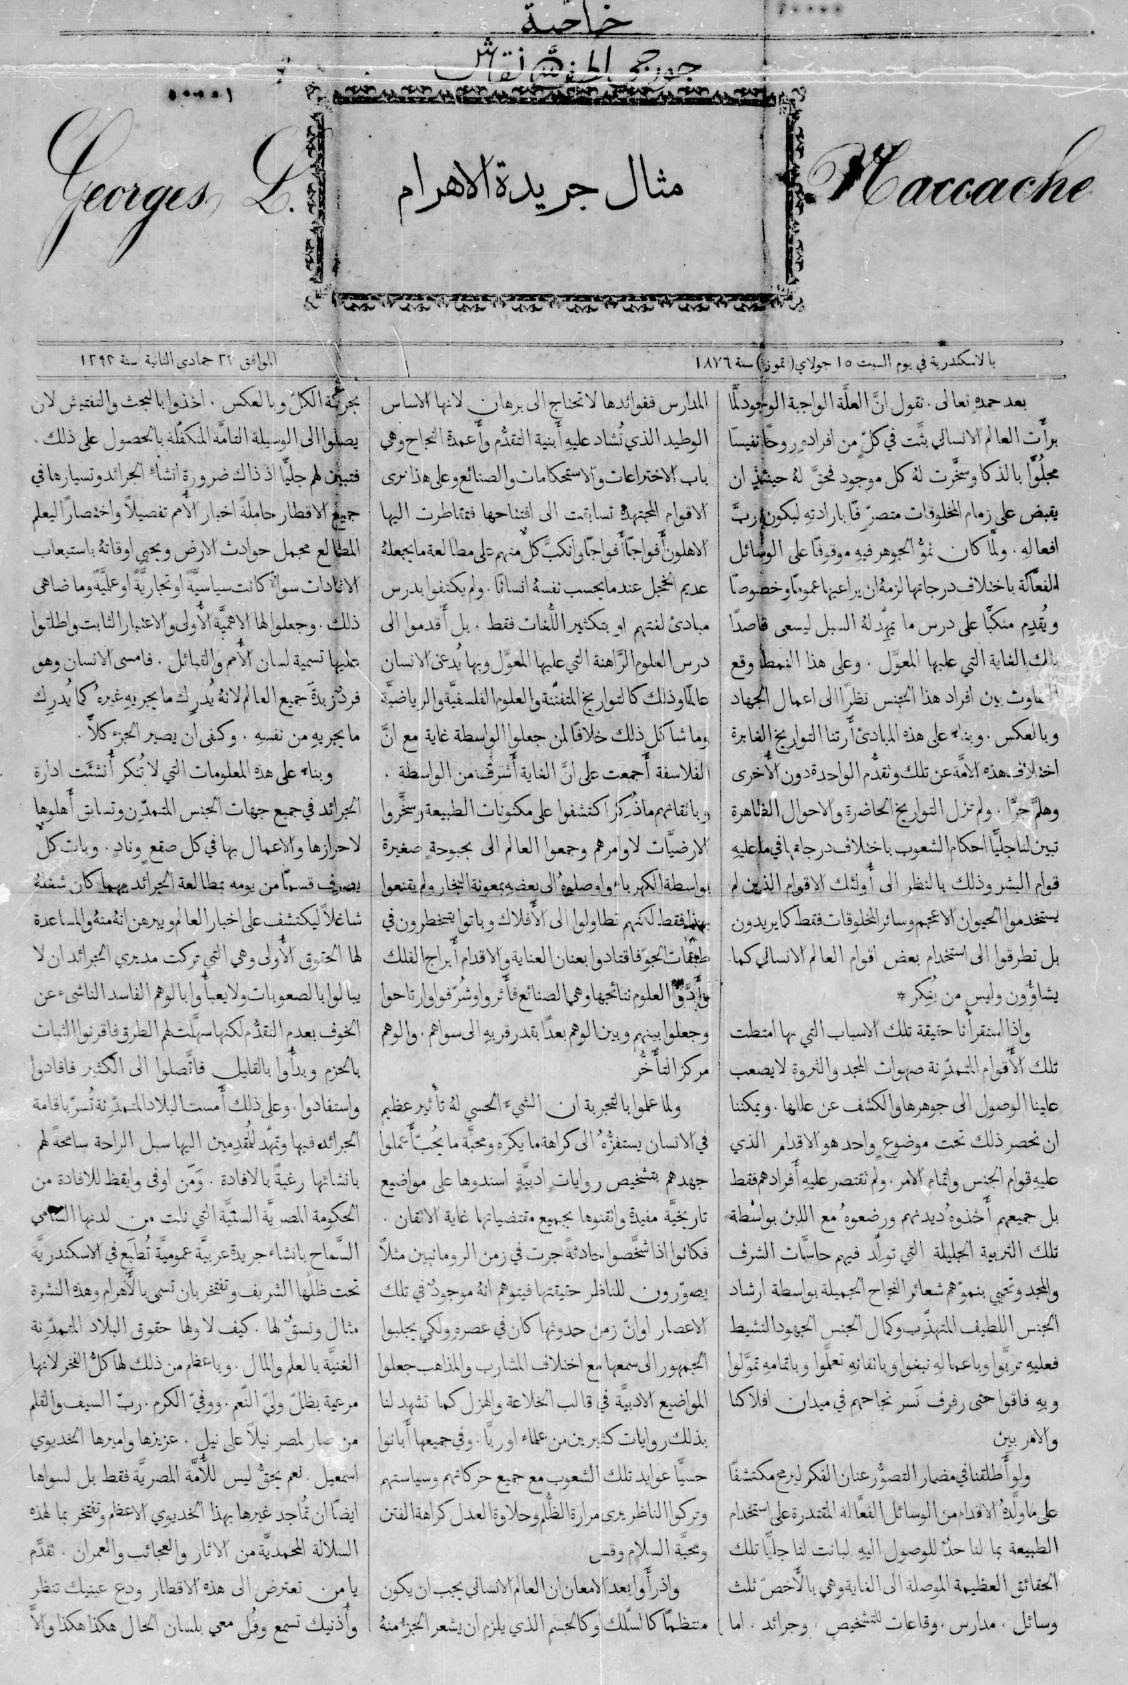 خاصة
جورجي لطف الله نقاش
Georges L. Naccache
مثال جريدة الاهرام
بالاسكندرية في يوم السبت ١٥ جولاي (تموز) سنة ١٨٧٦
الموافق ٢٣ جمادى الثانية سنة ١٢٩٣
بعد حمدهِ تعالى. نقول انَّ العلَّة الواجبة الوجود لمَّا
برأَت العالم الانساني بثَّت في كلٍّ من افرادهِ روحًا نفيسًا
مجلُوًّا بالذكا وسخَّرت لهُ كل موجود فحقَّ لهُ حينئذٍ ان
يقبض على زمام المخلوقات متصرّفًا بارادتهِ ليكون ربَّ
افعالهِ. ولمَّا كان نموُّ الجوهر فيهِ موقوفًا على الوسائل
الفعَّالة باختلاف درجاتها لزمهُ ان يراعيها عمومًا وخصوصًا
ويُقدِم منكبًّا على درس ما يمهّد لهُ السبل ليسعى قاصدًا
تلك الغاية التي عليها المعوَّل. وعلى هذا النمط وقع
التفاوت بين افراد هذا الجنس نظرًا الى اعمال الجهاد
وبالعكس. وبناء على هذه المبادئ أَرتنا التواريخ الغابرة
اختلاف هذه الامَّة عن تلك وتقدُّم الواحدة دون الأُخرى
وهلمَّ جرًّا. ولم تزل التواريخ الحاضرة والاحوال الظاهرة
تبين لنا جليًّا احكام الشعوب باختلاف درجاتها في ما عليهِ
قوام البشر وذلك بالنظر الى أُولئك الاقوام الذين لم
يستخدموا الحيوان الاعجم وسائر المخلوقات فقط كما يريدون
بل تطرقوا الى استخدام بعض اقوام العالم الانساني كما
يشاؤُون وليس من يُنكِر *
واذا استقرأنا حقيقة تلك الاسباب التي بها امتطت
تلك الأَقوام المتمدّنة صهوات المجد والثروة لا يصعب
علينا الوصول الى جوهرها والكشف عن عللها. ويمكننا
ان نحصر ذلك تحت موضوع واحد هو الاقدام الذي
عليهِ قوام الجنس واتمام الامر. ولم نقتصر عليهِ أَفرادهم فقط
بل جميعهم أَخذوهُ ديدنهم ورضعوهُ مع اللبن بواسطة
تلك التربية الجليلة التي تولّد فيهم حاسَّات الشرف
والمجد وتحيي بنموّهم شعائر النجاح الجميلة بواسطة ارشاد
الجنس اللطيف المتهذّب وكمال الجنس الجهود النشيط
فعليهِ تربَّوا وباعمالهِ نبغوا وباتقانهِ تعلَّموا وباتمامهِ تموَّلوا
وبهِ فاقوا حتى رفرف نَسر نجاحهم في ميدان افلاكنا
والامر بين
ولو أَطلقنا في مضمار التصوُّر عنان الفكر ليرمح مكتشفًا
على ما ولَّدهُ الاقدام من الوسائل الفعَّالة المقتدرة على استخدام
الطبيعة بما لنا حدٌّ للوصول اليهِ لبانت لنا جليًّا تلك
الحقائق العظيمة الموصلة الى الغاية وهي بالأَخصّ ثلث
وسائل. مدارس. وقاعات للتشخيص. وجرائد. اما
المدارس ففوائدها لا تحتاج الى برهان لانها الاساس
الوطيد الذي تُشاد عليهِ أَبنية التقدُّم وأَعمدة النجاح وهي
باب الاختراعات والاستحكامات والصنائع وعلى هذا نرى
الاقوام المجتهدة تسابقت الى افتتاحها فتقاطرت اليها
الاهلون أَفواجًا أَفواجًا وانكبَّ كلٌّ منهم على مطالعة ما يجعلهُ
عديم الخجل عندما يحسب نفسهُ انسانًا. ولم يكتفوا بدرس
مبادئ لغتهم او بتكثير اللُغات فقط. بل أَقدموا الى
درس العلوم الرَّاهنة التي عليها المعوَّل وبها يُدعى الانسان
عالمًا وذلك كالتواريخ المتفنّنة والعلوم الفلسفيَّة والرياضيَّة
وما شاكل ذلك خلافًا لمن جعلوا الواسطة غاية مع انَّ
الفلاسفة أَجمعت على انَّ الغاية أَشرف من الواسطة.
وباتقانهم ما ذُكِر اكتشفوا على مكنونات الطبيعة وسخَّروا
الارضيَّات لاوامرهم وجمعوا العالم الى بحبوحةٍ صغيرة
بواسطة الكهرباء واوصلوهُ الى بعضهِ بمعونة البخار ولم يقنعوا
بهذا فقط لكنهم تطاولوا الى الأَفلاك وباتوا يتخطرون في
طبقات الجوّ فاقتادوا بعنان العناية والاقدام أَبراج الفلك
العلوم نتائجها وهي الصنائع فأَثروا وشُرّفوا وارتاحوا
وجعلوا بينهم وبين الوهم بعدًا بقدر قربهِ الى سواهم. والوهم
مركز التأَخُّر
ولما علموا بالتجربة ان الشيءَ الحسي لهُ تأثير عظيم
في الانسان يستفزُّهُ الى كراهة ما يكرَه ومحبَّة ما يُحَبّ أَعملوا
جهدهم بتشخيص روايات ادبيَّةٍ اسندوها على مواضيع
تاريخيَّة مفيدة واتقنوها بجميع مقتضياتها غاية الاتقان.
فكانوا اذا شخَّصوا حادثةً جرت في زمن الرومانيين مثلاً
يصوّرون للناظر حقيقتها فيتوهم انهُ موجودٌ في تلك
الاعصار اوانّ زمن حدوثها كان في عصرهِ ولكي يجلبوا
الجمهور الى سمعها مع اختلاف المشارب والمذاهب جعلوا
المواضيع الادبيَّة في قالب الخلاعة والهزل كما تشهد لنا
بذلك روايات كثيرين من علماء اوربَّا. وفي جميعها أَبانوا
حسيًّا عوايد تلك الشعوب مع جميع حركاتهم وسياستهم
وتركوا الناظر يرى مرارة الظُّلم وحلاوة العدل كراهة الفتن
ومحبَّة السلام وقس
واذ رأَوا بعد الامعان ان العالم الانساني يجب ان يكون
منتظمًا كالسّلك وكالجسم الذي يلزم ان يشعر الجزءُ منهُ
بحركة الكلّ وبالعكس. اخذوا بالبحث والتفتيش لان
يصلوا الى الوسيلة التامَّة المتكفّلة بالحصول على ذلك.
فتبين لهم جليًّا اذ ذاك ضرورة انشاء الجرائد وتسيارها في
جميع الاقطار حاملة اخبار الأُمم تفصيلاً واختصارًا ليعلم
المطالع مجمل حوادث الارض ويحيي اوقاتهُ باستيعاب
الافادات سواءٌ كانت سياسيَّةً او تجاريَّةً او علميَّةً وما ضاهى
ذلك. وجعلوا لها الاهميَّة الأُولى والاعتبار الثابت واطلقوا
عليها تسمية لسان الأُمم والقبائل. فامسى الانسان وهو
فردٌ زبدةَ جميع العالم لانهُ يُدرِك ما يجريهِ غيرهُ كما يُدرِك
ما يجريهِ من نفسهِ. وكفى ان يصير الجزء كلاًّ.
وبناءً على هذه المعلومات التي لا تُنكر أُنشئَت ادارة
الجرائد في جميع جهات الجنس المتمدّن وتسابق أَهلوها
لاحرازها والاعمال بها في كل صقعٍ ونادٍ. وبات كلٌّ
يصرف قسمًا من يومه بمطالعة الجرائد مهما كان شغلهُ
شاغلاً ليكتشف على اخبار العالم ويبرهن انهُ منهُ والمساعدة
لها الحقوق الأُولى وهي التي تركت مديري الجرائد ان لا
يبالوا بالصعوبات ولا يعبأُوا بالوهم الفاسد الناشىء عن
الخوف بعدم التقدُّم لكنها سهَّلت لهم الطرق فاقرنوا الثبات
بالحزم وبدأُوا بالقليل فاتَّصلوا الى الكثير فافادوا
واستفادوا. وعلى ذلك أَمست البلاد المتمدّنة تُسرّ باقامة
الجرائد فيها وتمهّد للمُقدِمين اليها سبل الراحة سامحةً لهم
بانشائها رغبةً بالافادة. وَمَن اوفى وايقظ للافادة من
الحكومة المصريَّة السنيَّة التي نلت من لدنها السَّامي
السَّماح بانشاء جريدة عربيَّة عموميَّة تُطبَع في الاسكندريَّة
تحت ظلّها الشريف وتفتخر بان تسمى بالأَهرام وهذه النشرة
مثال ونسقٌ لها. كيف لا ولها حقوق البلاد المتمدّنة
الغنيَّة بالعلم والمال. وباعظم من ذلك لها كلُّ الفخر لانها
مرعية بظلّ وليّ النّعم. ووفيّ الكرم. ربّ السيف والقلم
من صار لمصر نيلاً على نيلٍ. عزيزها واميرها الخديوي
اسمعيل. نعم يحقُّ ليس للأُمَّة المصريَّة فقط بل لسواها
ايضًا ان تُماجد غيرها بهذا الخديوي الاعظم وتفتخر بما لهذه
السلالة المحمديَّة من الاثار والعجائب والعمران. تقدَّم
يا من تعترض الى هذه الاقطار ودع عينيك تنظر
وأُذنيك تسمع وقُل معي بلسان الحال هكذا هكذا والاَّ